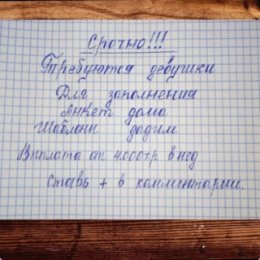 Срочно!!!
Требуются девушки
Для заполнения
Анкет дома
Шаблон дадим
Выплата от 4000тр в нед
Ставь + в комментарии.